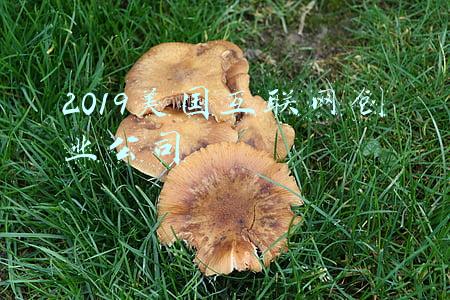 2019美国互联网创
业公司